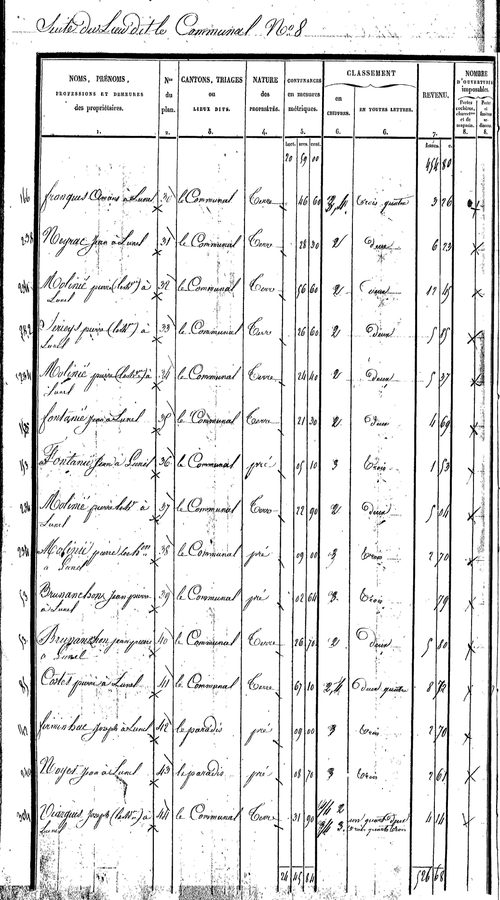 Suite du Lieu dit le Communal N° 8
NOMS, PRÉNOMS, PROFESSIONS ET DEMEURES des propriétaires. 1.
Nos du plan. 2.
CANTONS, TRIAGES ou LIEUX DITS. 3.
NATURE des PROPRIÉTÉS. 4.
CONTENANCES en mesures métriques. 5.
CLASSEMENT
en CHIFFRES. 6.
EN TOUTES LETTRES. 6.
REVENU. 7.
NOMBRE D'OUVERTURES imposables.
hect. ares. cent.
20 59 00 454 80
franques à Lunel 30 le Communal Terre 46 60 3,4 trois quatre 3 26
Neyrac Jean à Lunel 31 le Communal Terre 28 30 2 deux 6 23
Molinié pierre à Lunel 32 le Communal Terre 56 60 2 deux 12 45
pierre à Lunel 33 le Communal Terre 26 60 2 deux 5 85
Molinié pierre à Lunel 34 le Communal Terre 24 40 2 deux 5 37
fontanié Jean à Lunel 35 le Communal Terre 21 30 2 deux 4 69
Fontanié Jean à Lunel 36 le Communal pré 05 10 3 trois 1 53
Molinié pierre à Lunel 37 le Communal Terre 22 90 2 deux 5 04
Molinié pierre à Lunel 38 le Communal pré 09 00 3 trois 2 70
Brunanchon Jean pierre à Lunel 39 le Communal pré 02 64 3 trois 79
Brunanchon Jean pierre à Lunel 40 le Communal Terre 26 70 2 deux 5 80
Costes pierre à Lunel 41 le Communal Terre 67 10 2,4 deux quatre 8 72
Joseph à Lunel 42 le paradis pré 09 00 3 trois 2 70
Noyer Jean à Lunel 43 le paradis pré 08 70 3 trois 2 61
Joseph à Lunel 44 le Communal Terre 31 90 1/4 2 un quart deux 4 14
3/4 3. trois quarts trois
24 45 84 526 68